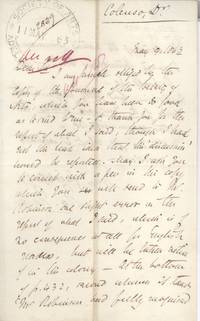 Colenso, Dr.
SOCIETY OF ARTS
11 MAY
63
May 9, 1863
Dear Sir
I am much obliged by the
copy of the Journal of the Society of
Arts which you have been so good
as to send me - & thank you for the
report of what I said, though I had
not the least idea that the discussion
would be reported. May I ask you
to correct with a pen in the copy
which you will send to Mr
Robinson one slight error in the
report of what I said, which is of
no consequence at all for English
readers, but will be taken notice
of in the colony - At the bottom
of p. 432, second column it
Mr Robinson and fully recognised